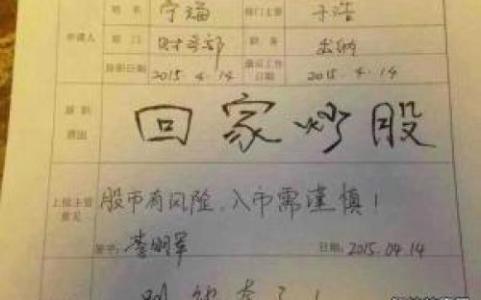 姓名 宁海 部门主管 于浩
申请人 部门 财务部 职务 出纳
辞职日期 2015.4.14 最后工作日期 2015.4.14
辞职理由 回家炒股
上级主管意见 股市有风险、入市需谨慎!
签字: 李明军 日期: 2015.04.14